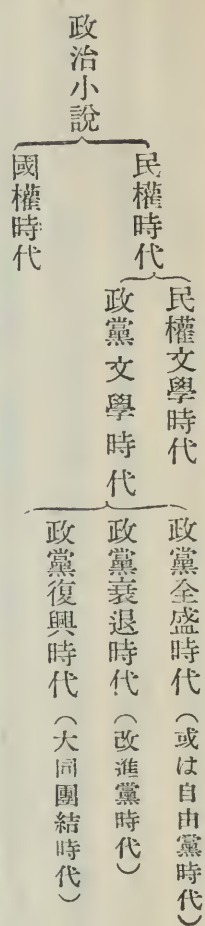 政治小說
民權時代
國權時代
民權文學時代
政黨文學時代
政黨全盛時代（或は自由黨時代）
政黨衰退時代（改進黨時代）
政黨復興時代（大同團結時代）